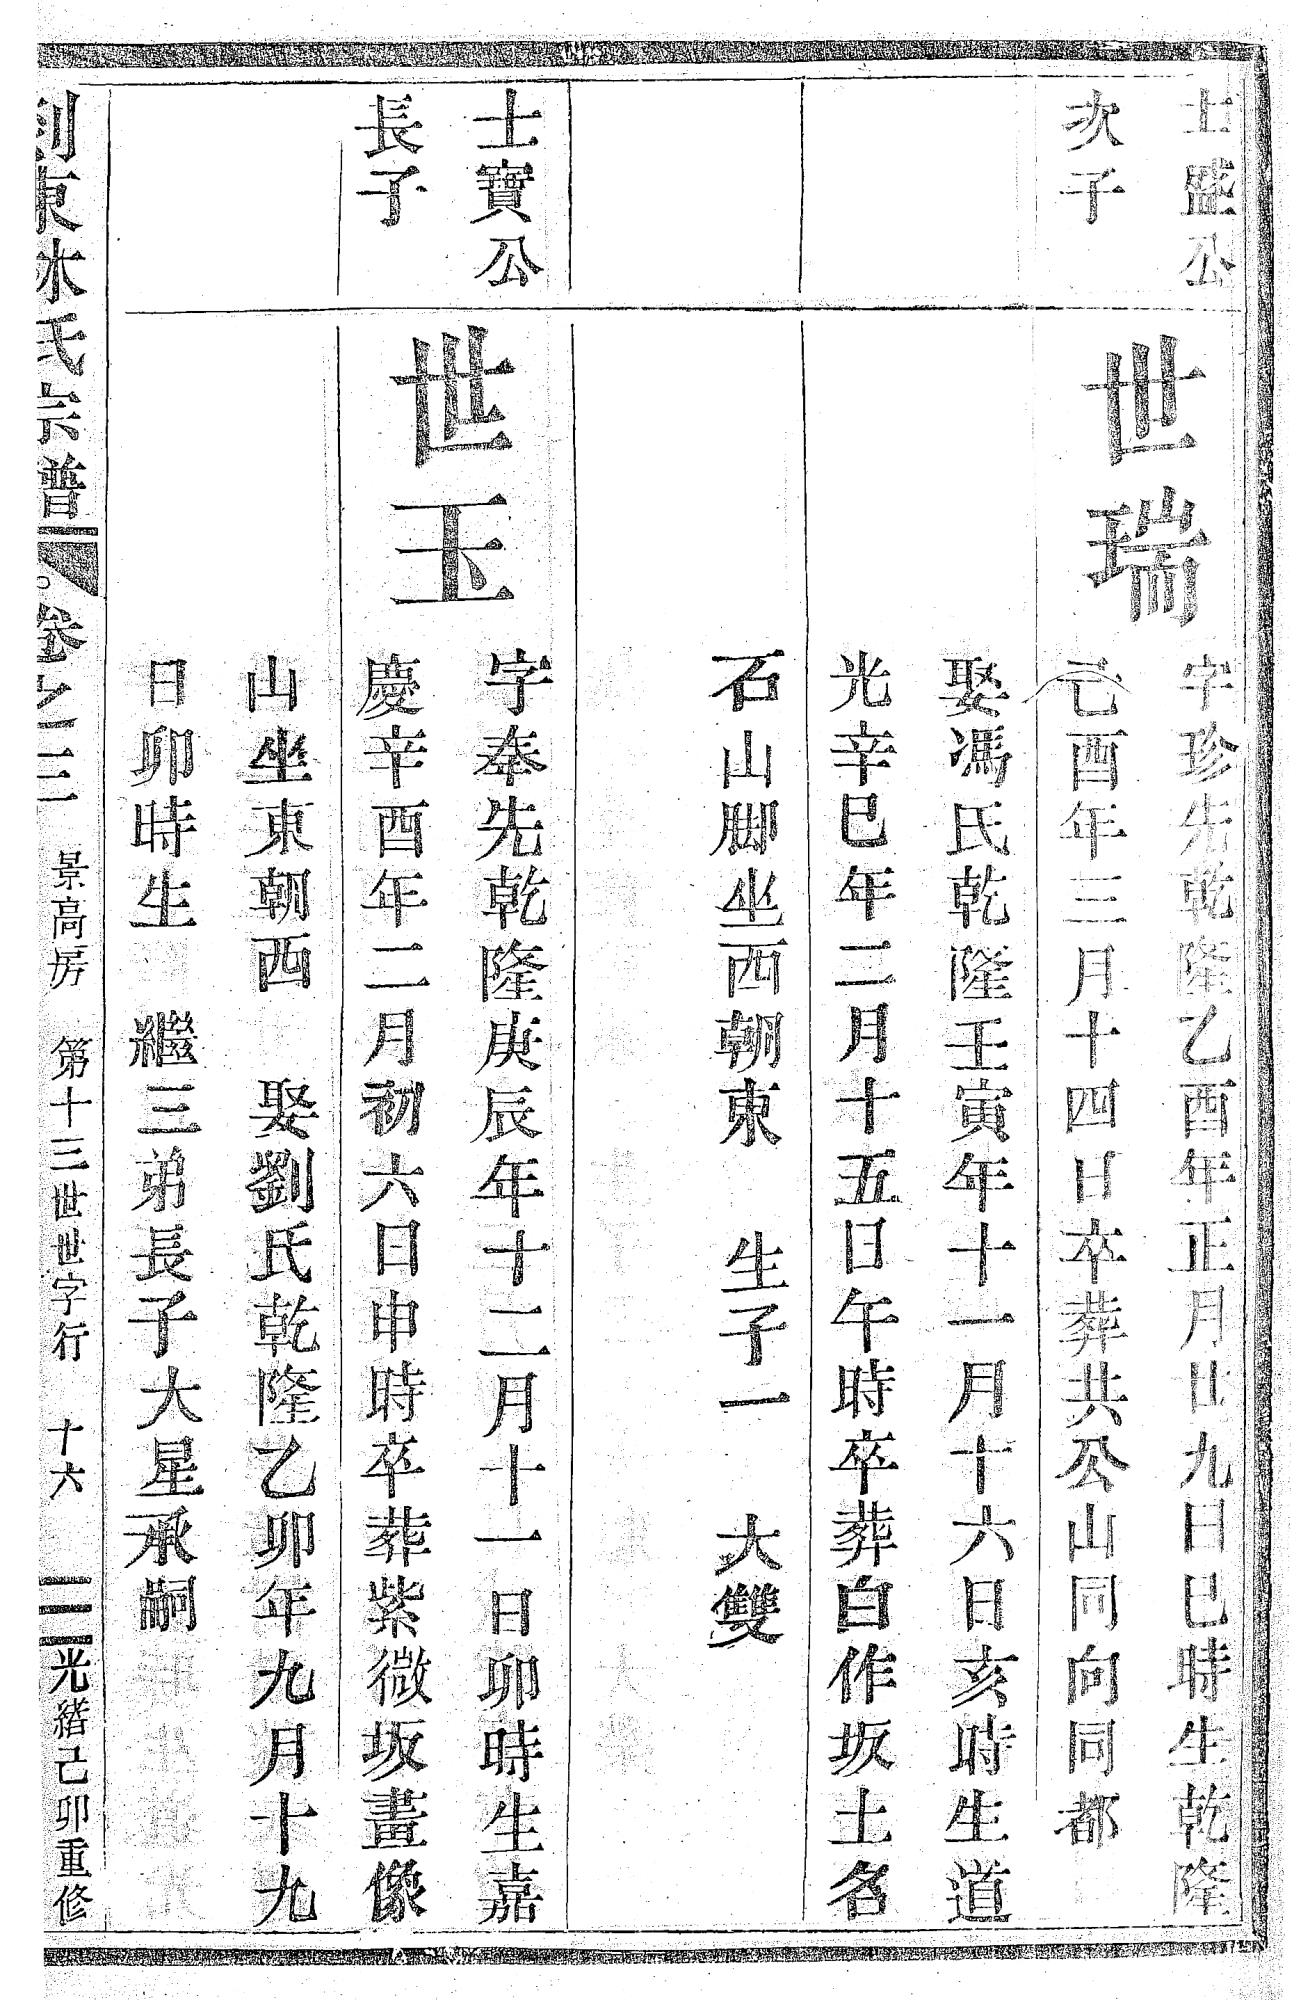 士盛公
次子
世瑞
字珍先乾隆乙酉年正月廿九日巳時生乾隆
己酉年三月十四日卒葬共公山同向同都
娶馮氏乾隆壬寅年十一月十六日亥時生道
光辛巳年二月十五日午時卒葬白作坂土名
石山脚坐西朝東 生子一 大雙
士寶公
長子
世玉
字奉先乾隆庚辰年十二月十一日卯時生嘉
慶辛酉年二月初六日申時卒葬紫微坂畫像
山坐東朝西 娶劉氏乾隆乙卯年九月十九
日卯時生 繼三弟長子大星承嗣
剡東水氏宗譜 卷之三 景高房 第十三世世字行 十六 光緒己卯重修